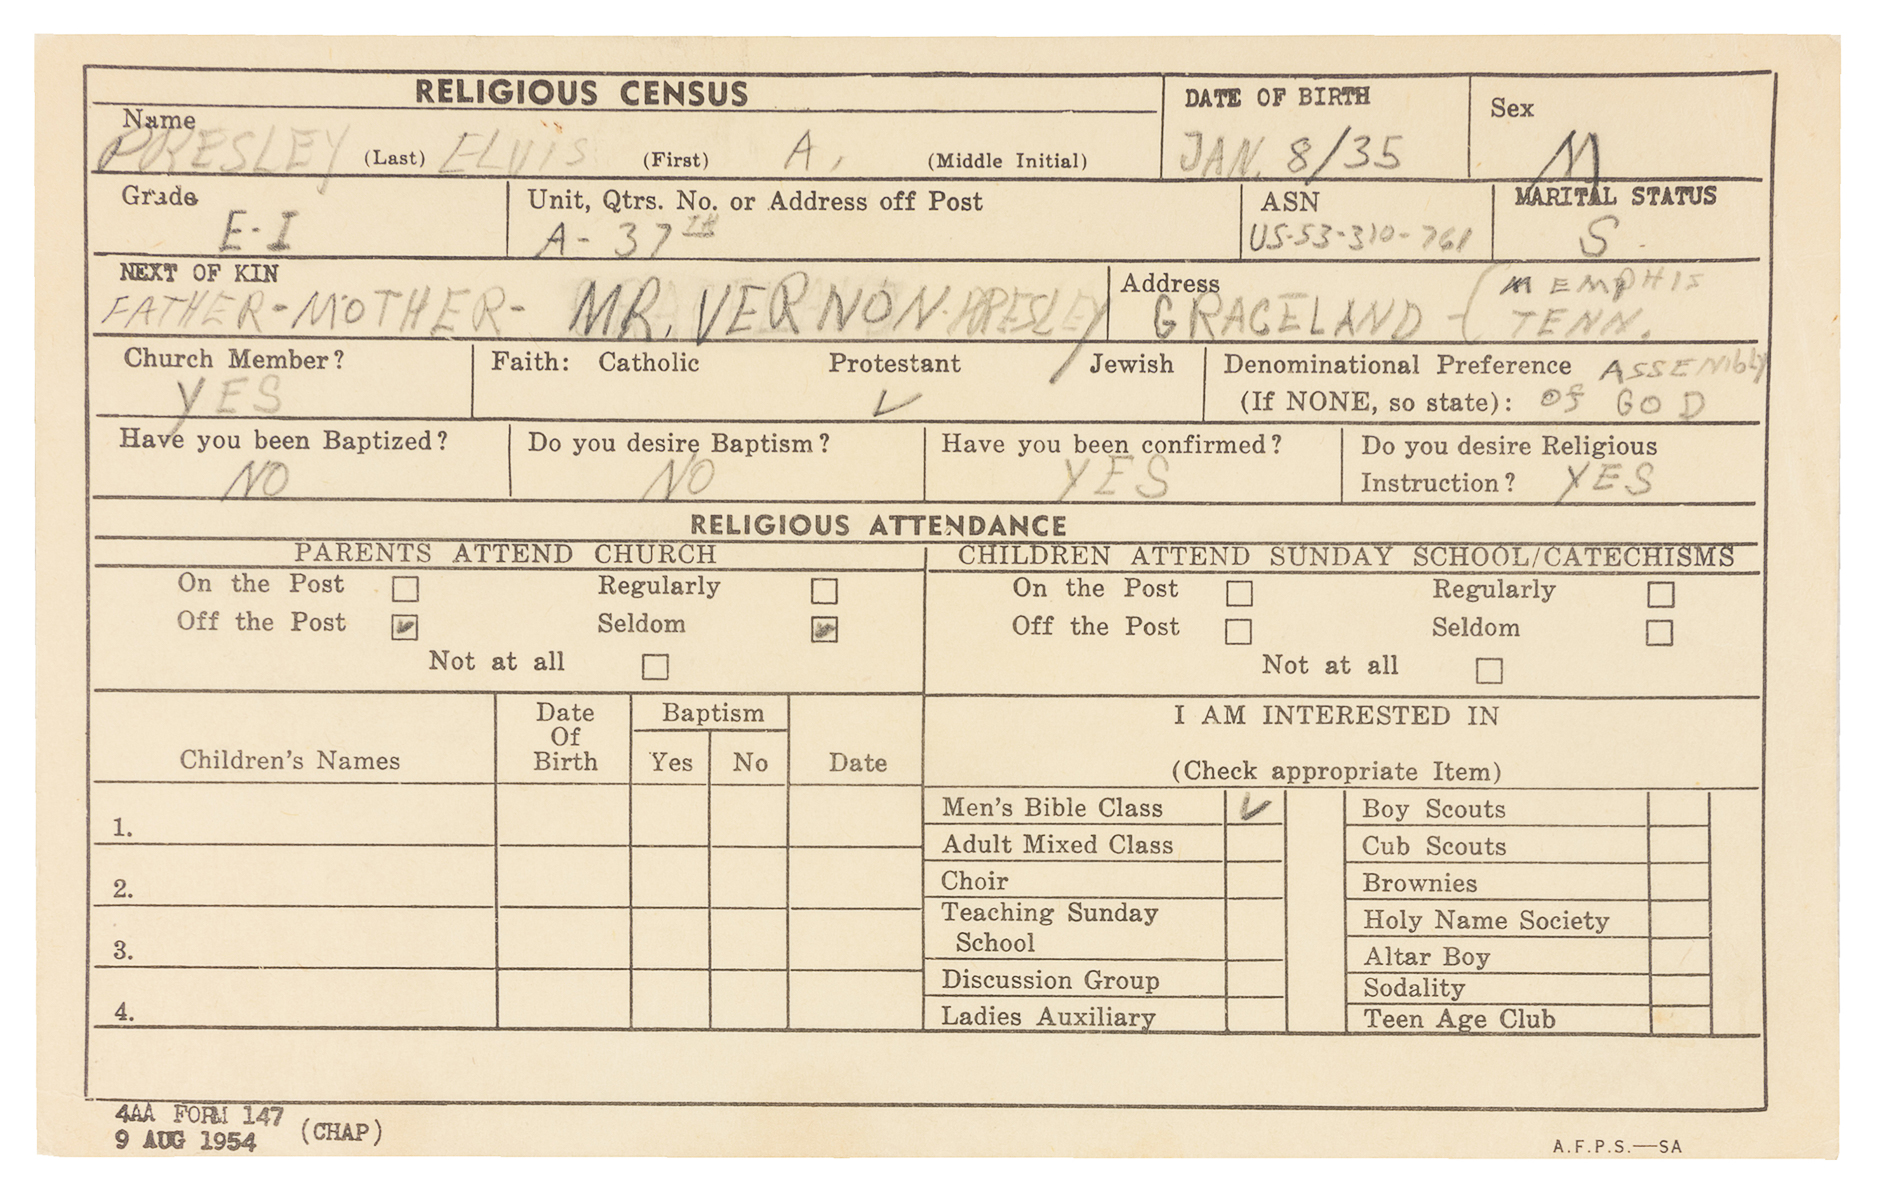 RELIGIOUS CENSUS
Name
PRESLEY (Last) ELVIS (First) A. (Middle Initial)
DATE OF BIRTH
JAN. 8/35
Sex
M
Grade
E-I
Unit, Qtrs. No. or Address off Post
A- 37TH
ASN
US-53-310-761
MARITAL STATUS
S
NEXT OF KIN
FATHER-MOTHER- MR. VERNON PRESLEY
Address
GRACELAND - (MEMPHIS
TENN.
Church Member?
YES
Faith: Catholic Protestant Jewish
✓
Denominational Preference ASSEMBLY
(If NONE, so state): of GOD
Have you been Baptized?
NO
Do you desire Baptism?
NO
Have you been confirmed?
YES
Do you desire Religious
Instruction? YES
RELIGIOUS ATTENDANCE
PARENTS ATTEND CHURCH
On the Post ☐ Regularly ☐
Off the Post ☑ Seldom ☑
Not at all ☐
CHILDREN ATTEND SUNDAY SCHOOL/CATECHISMS
On the Post ☐ Regularly ☐
Off the Post ☐ Seldom ☐
Not at all ☐
Children's Names
Date
Of
Birth
Baptism
Yes No
Date
1.
2.
3.
4.
I AM INTERESTED IN
(Check appropriate Item)
Men's Bible Class ✓
Adult Mixed Class
Choir
Teaching Sunday
School
Discussion Group
Ladies Auxiliary
Boy Scouts
Cub Scouts
Brownies
Holy Name Society
Altar Boy
Sodality
Teen Age Club
4AA FORM 147
9 AUG 1954 (CHAP)
A.F.P.S.—SA